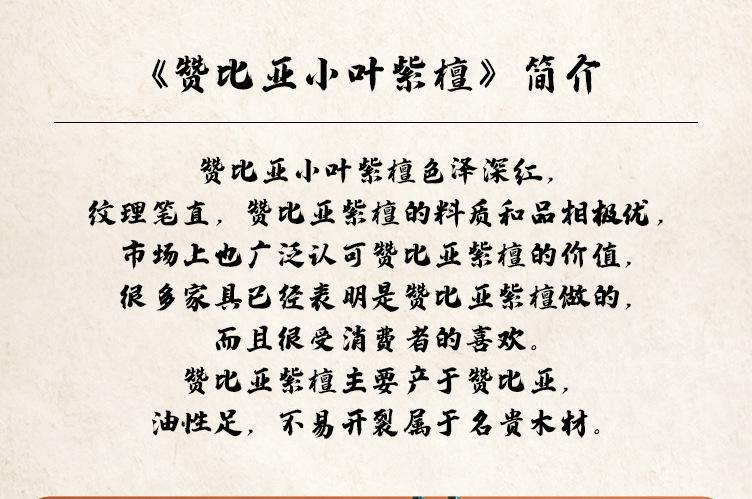 《赞比亚小叶紫檀》简介
赞比亚小叶紫檀色泽深红，
纹理笔直，赞比亚紫檀的料质和品相极优，
市场上也广泛认可赞比亚紫檀的价值，
很多家具已经表明是赞比亚紫檀做的，
而且很受消费者的喜欢。
赞比亚紫檀主要产于赞比亚，
油性足，不易开裂属于名贵木材。